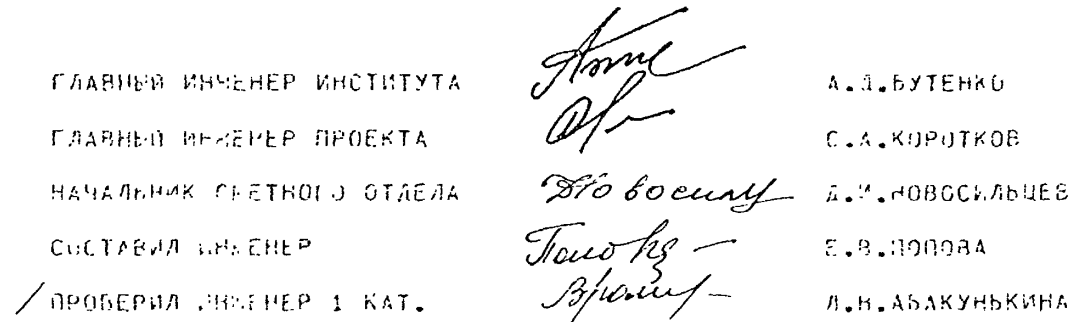 ГЛАВНЫЙ ИНЖЕНЕР ИНСТИТУТА А.Д.БУТЕНКО
ГЛАВНЫЙ ИНЖЕНЕР ПРОЕКТА С.А.КОРОТКОВ
НАЧАЛЬНИК СМЕТНОГО ОТДЕЛА Д.И.НОВОСИЛЬЦЕВ
СОСТАВИЛ ИНЖЕНЕР Е.В.ПОПОВА
ПРОВЕРИЛ ИНЖЕНЕР 1 КАТ. Л.Н.АБАКУНЬКИНА